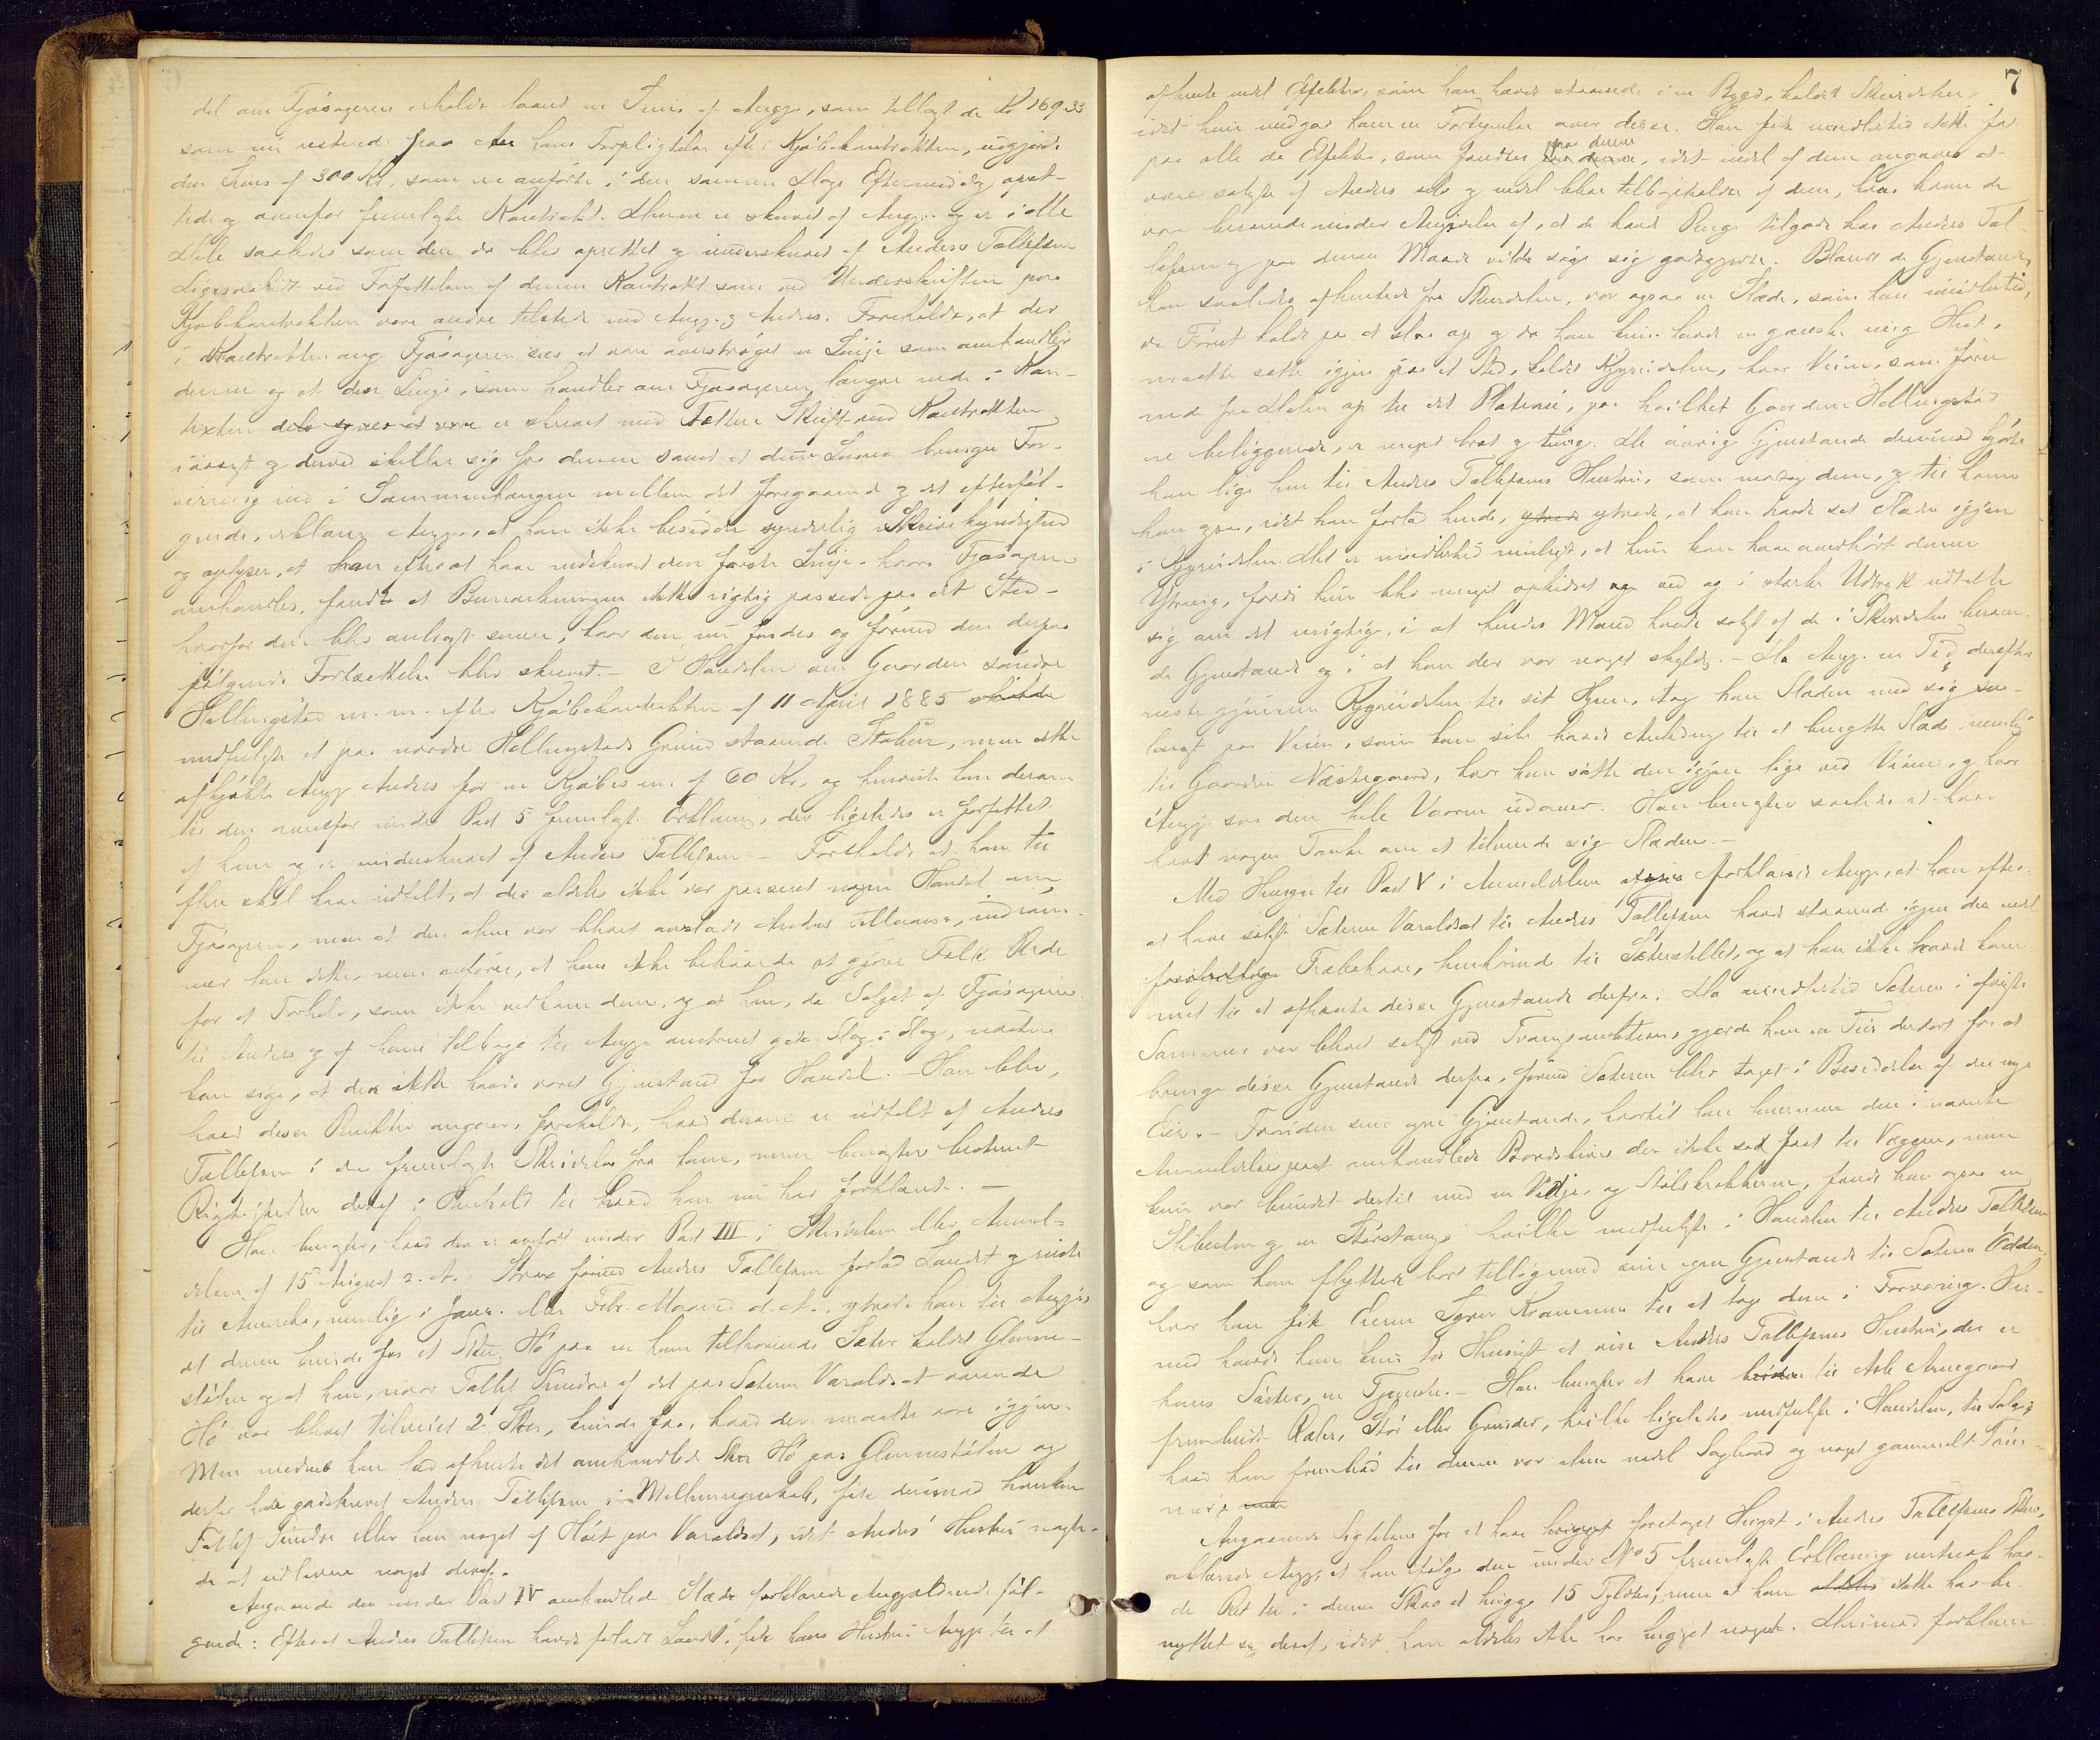 del om Fjøsageren erholdt laant en Sum af Angj., som tillagt de Kr 169.33
som nu resterede paa hans Forpligtelse efter Kjøbekontrakten, udgjorde
den Sum af 300 Kr, som er anført i den samme Dags Eftermiddag opret-
tede og ovenfor fremlagte Kontrakt. Denne er skrevet af Angj. og er i alle
Dele saaledes som den da blev oprettet og underskrevet af Anders Tollefsen
Ligesaalidt ved Forfattelsen af denne Kontrakt som ved Underskriften paa
Kjøbekontrakten vare andre tilstede end Angj. og Anders. Foreholdt, at der
i Kontrakten ang. Fjøsageren sees at være overstrøget en Linje som omhandler
denne og at den Linje, som handler om Fjøsageren længre nede i Kon-
texten er skrevet med tættere Skrift end Kontrakten
iøvrigt og derved skiller sig fra denne samt at denne Linie bringer For-
virring ind i Sammenhængen mellem det foregaaende og det efterføl-
gende, erklærer Angj., at han ikke besidder synderlig Skrivekyndighed
og oplyser, at han efter at have nedskrevet den første Linje, hvor Fjøsageren
omhandles, fandt at Bemærkningen ikke rigtig passede paa det Sted -
hvorfor den blev anbragt senere, hvor den nu findes og førend den derpaa
følgende Fortsættelse blev skrevet. - I Handelen om Gaarden søndre
Hellingstad m. m. efter Kjøbekontrakten af 11 April 1885
medfulgte et paa nordre Hellingstads Grund staaende Stabur, men dette
afkjøbte Angj. Anders for en Kjøbesum af 60 Kr, og henviste han derom
til den ovenfor under Post 5 fremlagte Erklæring, der ligeledes er forfattet
af ham og er underskrevet af Anders Tollefsen. - Foreholdt at han til
flere skal have udtalt, at der aldeles ikke var passeret nogen Handel om
Fjøsageren, men at den alene var blevet overladt Anders tillaans, indrøm-
mer han dette, men anfører, at han ikke behøvede at gjøre Folk Rede
for et Forhold, som ikke vedkom dem, og at han, da Salget af Fjøsageren
til Anders og af ham tilbage til Angj. omtrent gik Slag i Slag, næsten
kan sige, at den ikke havde været Gjenstand for Handel. - Han blev,
hvad disse Punkter angaar, foreholdt, hvad derom er udtalt af Anders
Tollefsen i de fremlagte Skrivelser fra ham, men benægter bestemt
Rigtigheden deraf i Henhold til hvad han nu har forklaret. -
Han benægter, hvad der er anført under Post III i Skrivelsen eller Anmel-
delsen af 15 August d. A. Strax førend Anders Tollefsen forlod Landet og reiste
til Amerika, nemlig i Janr. eller Febr. Maaned d. A., ytrede han til Angj.,
at denne kunde faa et Staa Hø paa en ham tilhørende Sæter kaldet Glenne-
stølen og at han, naar Tollef Tundre af det paa Sæteren Varaldset værende
Hø var blevet tilveiet 2 Staa, kunde faa, hvad der maatte være igjen.
Men medens han lod afhente det omhandlede Staa Hø paa Glennestølen og
derfor har godskrevet Anders Tollefsen i Mellemregnskab, fik derimod hverken
Tollef Tundre eller han noget af Høet paa Varaldset, idet Anders' Hustru nægte-
de at udlevere noget deraf.
Angaaende den under Post IV omhandlede Slæde forklarede Angjældende føl-
gende: Efterat Anders Tollefsen havde forladt Landet, fik hans Hustru Angj. til at
7
afhente endel Effekter, som han havde staaende i en Bygd, kaldet Skurdalen,
idet hun medgav ham en Fortegnelse over disse. Han fik imidlertid ikke fat
paa alle de Effekter, som fandtes paa denne, idet endel af dem angaves at
være solgte af Anders selv og endel blev tilbageholdte af dem, hos hvem de
var beroende under Angivelse af, at de havde Penge tilgode hos Anders Tol-
lefsen og paa denne Maade vilde søge sig godtgjorte. Blandt de Gjenstande,
han saaledes afhentede fra Skurdalen, var ogsaa en Slæde, som han imidlertid,
da Føret holdt paa at slaa op og da han kun havde en ganske ung Hest,
maatte sætte igjen paa et Sted, kaldet Rygreidelen, hvor Veien, som fører
ned fra Dalen op til det Plateau, paa hvilket Gaardene Hellingstad
ere beliggende, er meget brat og tung. De øvrige Gjenstande derimod kjørte
han lige hen til Anders Tollefsens Hustru, som modtog dem, og til hvem
han ogsaa, idet han forlod hende, ytrede, at han havde sat Slæden igjen
i Rygreidelen. Det er imidlertid muligt, at hun kan have overhørt denne
Ytring, fordi hun blev meget ophidset og ved og i stærke Udtryk udtalte
sig om det urigtige i at hendes Mand havde solgt af de i Skurdalen beroen-
de Gjenstande og i at han der var noget skyldig. - Da Angj. en Tid derefter
reiste gjennem Rygreidelen til sit Hjem, tog han Slæden med sig saa-
langt paa Veien, som han selv havde Anledning til at benytte Slæde, nemlig
til Gaarden Næstegaard, hvor han satte den igjen lige ved Veien, og hvor
Angj. saa den hele Vaaren udover. Han benægter saaledes at have
havt nogen Tanke om at tilvende sig Slæden. -
Med Hensyn til Post V i Anmeldelsen forklarede Angj., at han efter
at have solgt Sæteren Varaldset til Anders Tollefsen havde staaende igjen der endel
Træbokare, henhørende til Sæterstellet, og at han ikke havde kom-
met til at afhente disse Gjenstande derfra. Da imidlertid Sæteren i forige
Sommer var blevet solgt ved Tvangsauktion, gjorde han en Tur derbort for at
bringe disse Gjenstande derfra, førend Sæteren blev taget i Besiddelse af den nye
Eier. - Foruden sine egne Gjenstande, hvortil han henregner den i nævnte
Anmeldelsespost omhandlede Bordskive, der ikke sad fast til Væggen, men
kun var bundet dertil med en Vidje, og Stolskrakkerne, fandt han ogsaa en
Slibesten og en Størstang, hvilke medfulgte i Handelen til Anders Tollefsen
og som han flyttede bort tilligemed sine egne Gjenstande til Sæteren Ødden,
hvor han fik Eieren Syver Krammen til at tage dem i Forvaring. Her-
med havde han kun til Hensigt at vise Anders Tollefsens Hustru, der er
hans Søster, en Tjeneste. - Han benægter at have til Asle Annegaard
frembudt Ræler, Stør eller Grinder, hvilke ligeledes medfulgte i Handelen, til Salg;
hvad han frembød til denne var alene endel Sagbord og noget gammelt Tøm-
mer.
Angaaende Sigtelsen for at have foretaget Hugst i Anders Tollefsens Skov,
erklærede Angj., at han ifølge den under No 5 fremlagte Erklæring vistnok hav-
de Ret til i denne Skov at hugge 15 Tylfter, men at han ikke har be-
nyttet sig deraf, idet han aldeles ikke har hugget noget. Derimod forklarer